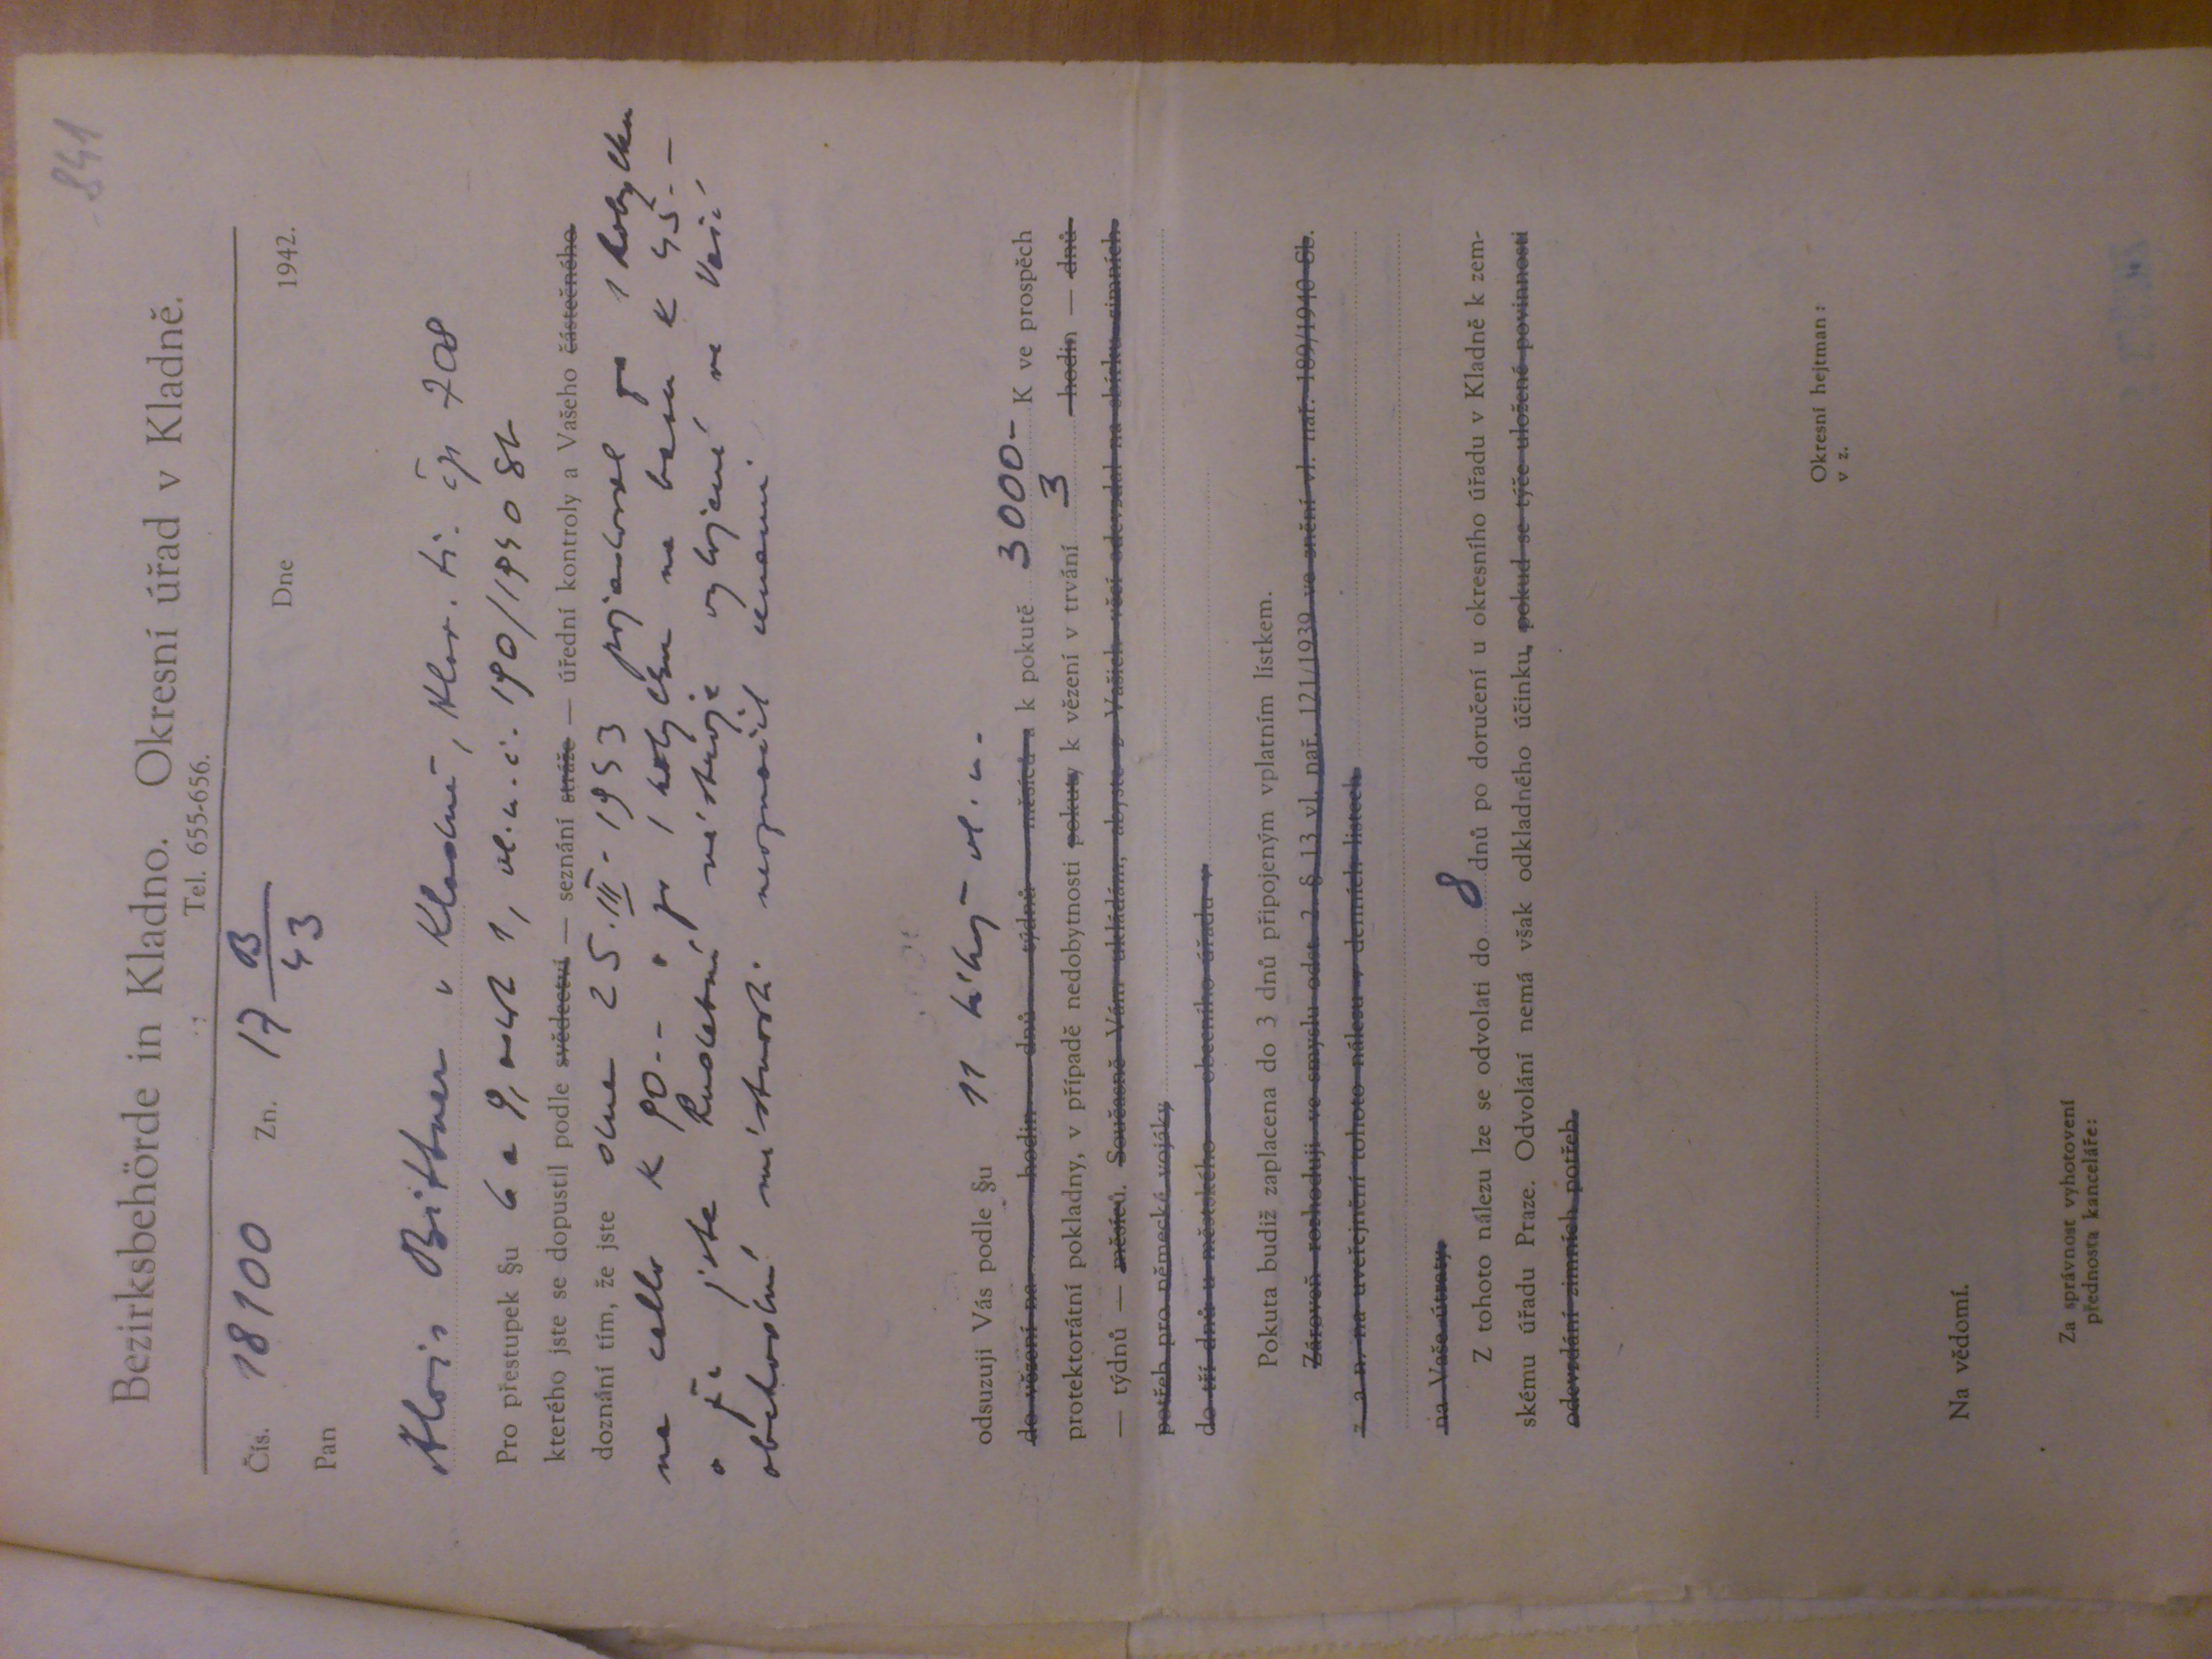 841
Bezirksbehörde in Kladno. Okresní úřad v Kladně.
Tel. 655-656.
Čís. 18100 Zn. 17 B/43 Dne 1942.
Pan
Alois Bittner v Kladně, Hlav. tř. čp 708
Pro přestupek §u 6 a 9, odst 1, vl. n. č. 190/1940 Sb
kterého jste se dopustil podle svědectví — seznání stráže — úřední kontroly a Vašeho částečného
doznání tím, že jste dne 25.III. 1943 požadoval za 1 kobylku
na cello K 90.-- a za 1 kobylku na basu K 45.--
a že jste hudební nástroje vyložené ve Vaší
obchodní místnosti neoznačil cenami
odsuzuji Vás podle §u 11 téhož vl. n.
do vězení na hodin dnů týdnů měsíců a k pokutě 3000- K ve prospěch
protektorátní pokladny, v případě nedobytnosti pokuty k vězení v trvání 3 hodin — dnů
— týdnů — měsíců. Současně Vám ukládám, abyste z Vašich věcí odevzdal na sbírku zimních
potřeb pro německé vojáky
do tří dnů u městského — obecního úřadu v
Pokuta budiž zaplacena do 3 dnů připojeným vplatním lístkem.
Zároveň rozhoduji ve smyslu odst. 2. § 13 vl. nař. 121/1939 ve znění vl. nař. 189/1940 Sb.
z. a n. na uveřejnění tohoto nálezu v denních listech
na Vaše útraty.
Z tohoto nálezu lze se odvolati do 8 dnů po doručení u okresního úřadu v Kladně k zem-
skému úřadu Praze. Odvolání nemá však odkladného účinku, pokud se týče uložené povinnosti
odevzdání zimních potřeb.
Okresní hejtman:
v z.
Na vědomí.
Za správnost vyhotovení
přednosta kanceláře: